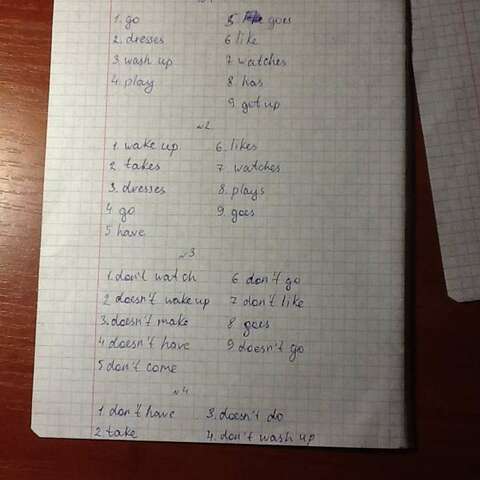 1. go 5. goes
2. dresses 6 like
3. wash up 7 watches
4. play 8. has
9. got up
№2
1. wake up 6. likes
2. takes 7. watches
3. dresses 8. plays
4 go 9. goes
5 have
№3
1. don't watch 6 don't go
2 doesn't wake up 7 don't like
3. doesn't make 8 goes
4 doesn't have 9 doesn't go
5 don't come
№4
1 don't have 3. doesn't do
2 take 4. don't wash up